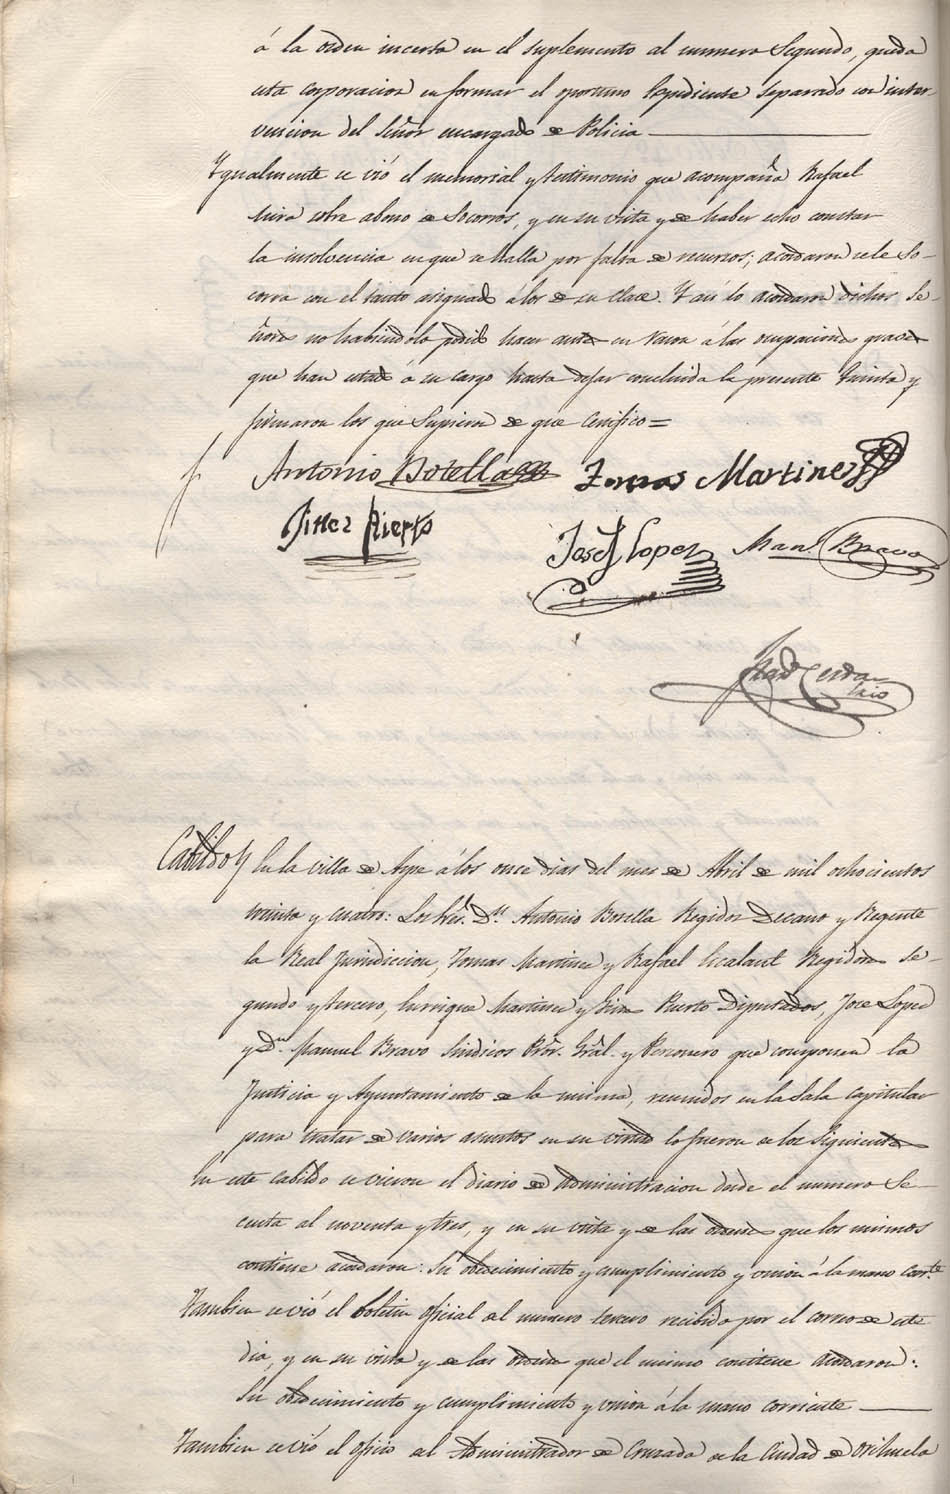 á la orden incerta en el suplemento al numero Segundo, queda
esta corporacion en formar el oportuno Expediente separado con inter-
vencion del Señor encargado de Policia
Ygualmente se vió el memorial y testimonio que acompaña Rafael
Mira sobre abono de Socorros, y en su vista y de haber echo constar
la insolvencia en que se halla por falta de recursos; acordaron se le So-
corra con el tanto asignado á los de su clace. Y asi lo acordaron dichos Se-
ñores no habiendolo podido hacer antes en razon á las ocupaciones graves
que han estado á su cargo hasta dejar concluida la presente Quinta y
firmaron los que Supieron de que Certifico=
Antonio Botella Tomas Martinez
Gines Puerto
Josef Lopez Man.l Bravo
Cabildo En la villa de Aspe á los once dias del mes de Abril de mil ochocientos
treinta y cuatro: Los Sres. Dn. Antonio Botella Regidor Decano y Regente
la Real Jurisdiccion, Tomas Martinez y Rafael Escalant Regidores Se-
gundo y tercero, Enrrique Martinez y Gines Puerto Diputados, Jose Lopez
y Dn. Manuel Bravo Sindicos Prôr. Grâl. y Personero que componen la
Justicia y Ayuntamiento de la misma, reunidos en la Sala capitular
para tratar de varios asuntos en su virtud lo fueron de los Siguientes
En este cabildo se vieron el diario de Administracion desde el numero Se-
centa al noventa y tres, y en su vista y de las ordenes que los mismos
contiene acordaron: Su obedecimiento y cumplimiento y union á la mano corr.te
Tambien se vió el boletin oficial del numero tercero recibido por el correo de este
dia, y en su vista y de las ordenes que el mismo contiene acordaron:
Su obedecimiento y cumplimiento y union á la mano corriente
Tambien se vió el oficio del Administrador de Cruzada de la Ciudad de Orihuela